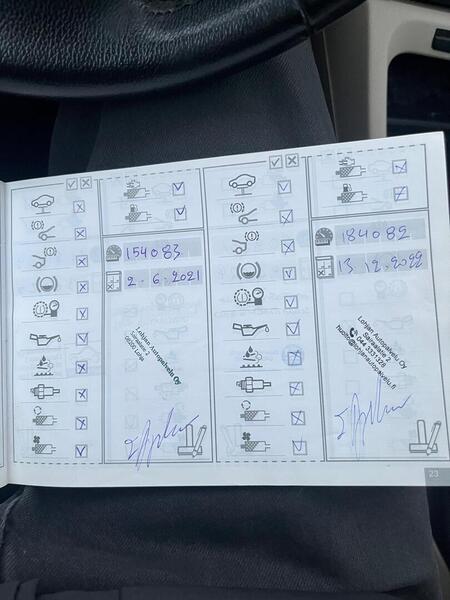 154083
2.6.2021
Lohjan Autopalvelu Oy
Sairaalatie 2
08500 Lohja
184082
13.12.2022
Lohjan Autopalvelu Oy
Sairaalatie 2
044 3331328
huolto@lohjanautopalvelu.fi
23